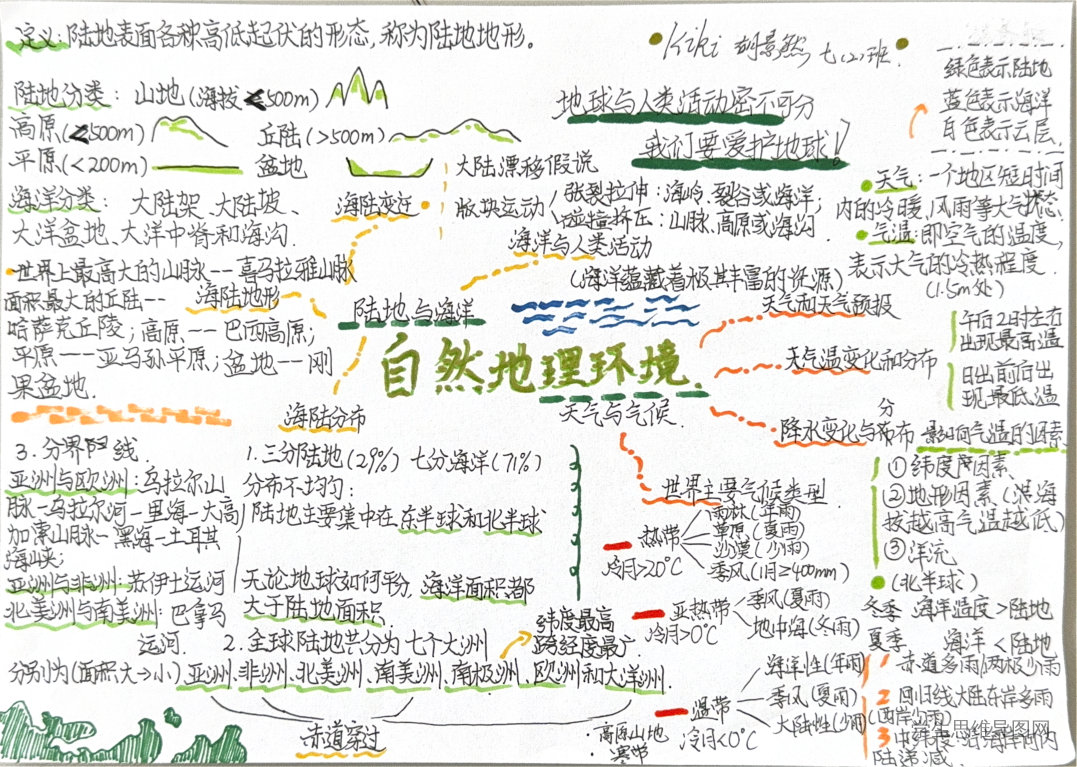 定义:陆地表面各种高低起伏的形态,称为陆地地形。
Kiki 胡景然 七(2)班.
陆地分类: 山地(海拔≤500m)
高原(≤500m) 丘陆(>500m)
平原(<200m) 盆地
海洋分类: 大陆架、大陆坡、
大洋盆地、大洋中脊和海沟.
世界上最高大的山脉--喜马拉雅山脉
面积最大的丘陆--
哈萨克丘陵;高原--巴西高原;
平原---亚马孙平原;盆地--刚
果盆地.
海陆地形
海陆变迁
大陆漂移假说
版块运动
张裂拉伸:海岭、裂谷或海洋;
碰撞挤压:山脉、高原或海沟.
地球与人类活动密不可分
我们要爱护地球!
海洋与人类活动
(海洋蕴藏着极其丰富的资源)
陆地与海洋
自然地理环境.
海陆分布
天气与气候.
绿色表示陆地
蓝色表示海洋
白色表示云层.
天气:一个地区短时间
内的冷暖,风雨等大气状态.
气温:即空气的温度,
表示大气的冷热程度.
(1.5m处)
天气和天气预报
天气温变化和分布
午后2时左右
出现最高温
日出前后出
现最低温
降水变化与分布
分
影响气温的因素
①纬度度因素
②地形因素(滨海
拔越高气温越低)
③洋流
(北半球)
冬季 海洋温度>陆地
夏季 海洋<陆地
1 赤道多雨,两极少雨
2 回归线大陆东岸多雨
(西岸少雨)
3 中纬度:沿海洋向内
陆递减.
世界主要气候类型
热带
冷月>20°C
雨林(年雨)
草原(夏雨)
沙漠(少雨)
季风(1月≥400mm)
亚热带
冷月>0°C
季风(夏雨)
地中海(冬雨)
温带
冷月<0°C
海洋性(年雨)
季风(夏雨)
大陆性(少雨)
·高原山地
·寒带
3.分界限线
亚洲与欧洲:乌拉尔山
脉-乌拉尔河-里海-大高
加索山脉-黑海-土耳其
海峡;
亚洲与非洲:苏伊士运河
北美洲与南美洲:巴拿马
运河.
1.三分陆地(29%) 七分海洋(71%)
分布不均匀:
陆地主要集中在东半球和北半球
无论地球如何平分,海洋面积都
大于陆地面积.
2.全球陆地共分为七个大洲
纬度最高
跨经度最广
分别为(面积大→小)亚洲、非洲、北美洲、南美洲、南极洲、欧洲和大洋洲.
赤道穿过